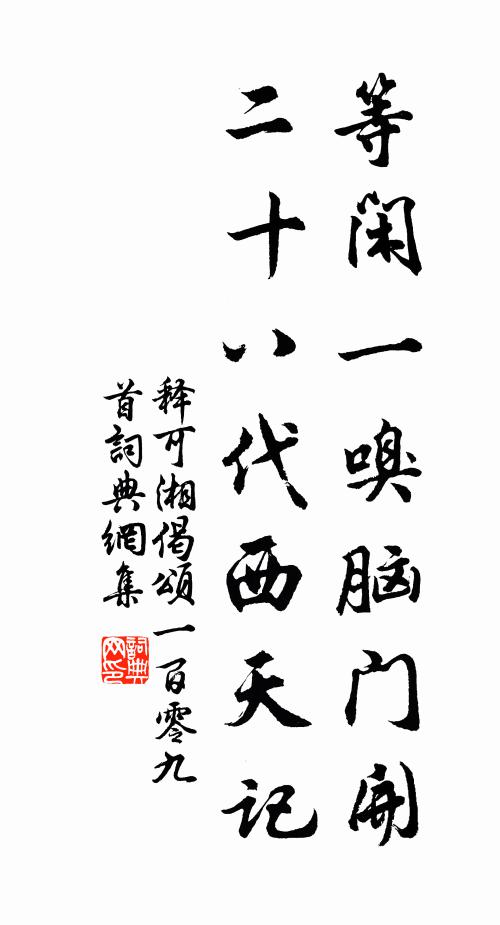 等闲一嗅脑门开
二十八代西天记
释可湘偈頌一百零九
首詞典網集
詞典网印